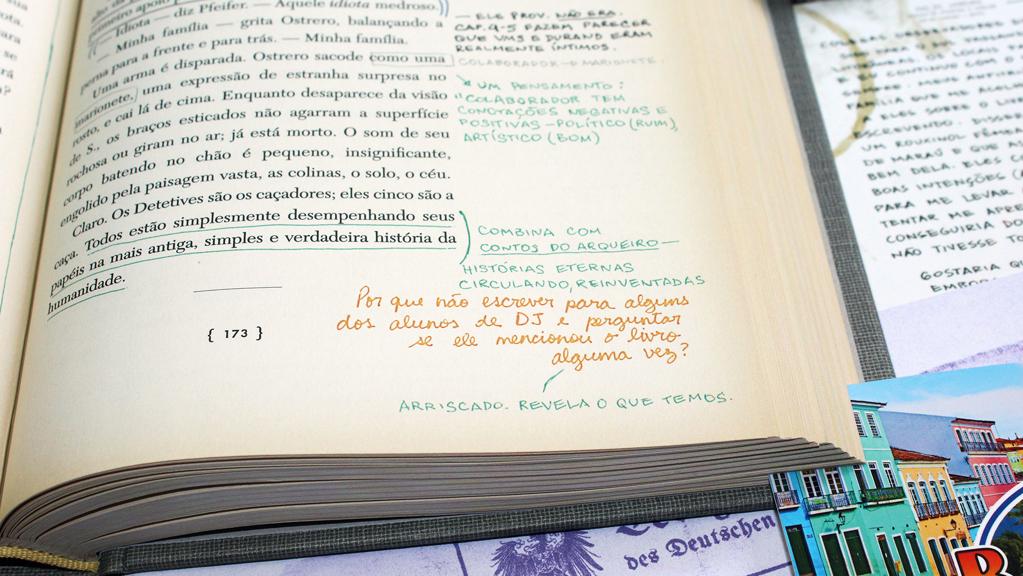 primeiro apoio
— Idiota — diz Pfeifer. — Aquele idiota medroso.
— Minha família — grita Ostrero, balançando a
perna para a frente e para trás. — Minha família.
Uma arma é disparada. Ostrero sacode como uma
marionete, uma expressão de estranha surpresa no
rosto, e cai lá de cima. Enquanto desaparece da visão
de S., os braços esticados não agarram a superfície
rochosa ou giram no ar; já está morto. O som de seu
corpo batendo no chão é pequeno, insignificante,
engolido pela paisagem vasta, as colinas, o solo, o céu.
Claro. Os Detetives são os caçadores; eles cinco são a
caça. Todos estão simplesmente desempenhando seus
papéis na mais antiga, simples e verdadeira história da
humanidade.
{ 173 }
— ELE PROV. NÃO ERA.
CAP. 4-5 FAZEM PARECER
QUE VMS E DURAND ERAM
REALMENTE ÍNTIMOS.
COLABORADOR → MARIONETE.
UM PENSAMENTO:
"COLABORADOR TEM
CONOTAÇÕES NEGATIVAS E
POSITIVAS – POLÍTICO (RUIM),
ARTÍSTICO (BOM)
COMBINA COM
CONTOS DO ARQUEIRO —
HISTÓRIAS ETERNAS
CIRCULANDO, REINVENTADAS
Por que não escrever para alguns
dos alunos de DJ e perguntar
se ele mencionou o livro
alguma vez?
ARRISCADO. REVELA O QUE TEMOS.
ESCREVENDO
UM ROUXINOL FÊMEA
DE MARAÚ E QUE AS
BEM DELA. ELES
BOAS INTENÇÕES
PARA ME LEVAR
TENTAR ME
CONSEGUIRIA DO
NÃO TIVESSE
GOSTARIA
des Deutschen
B